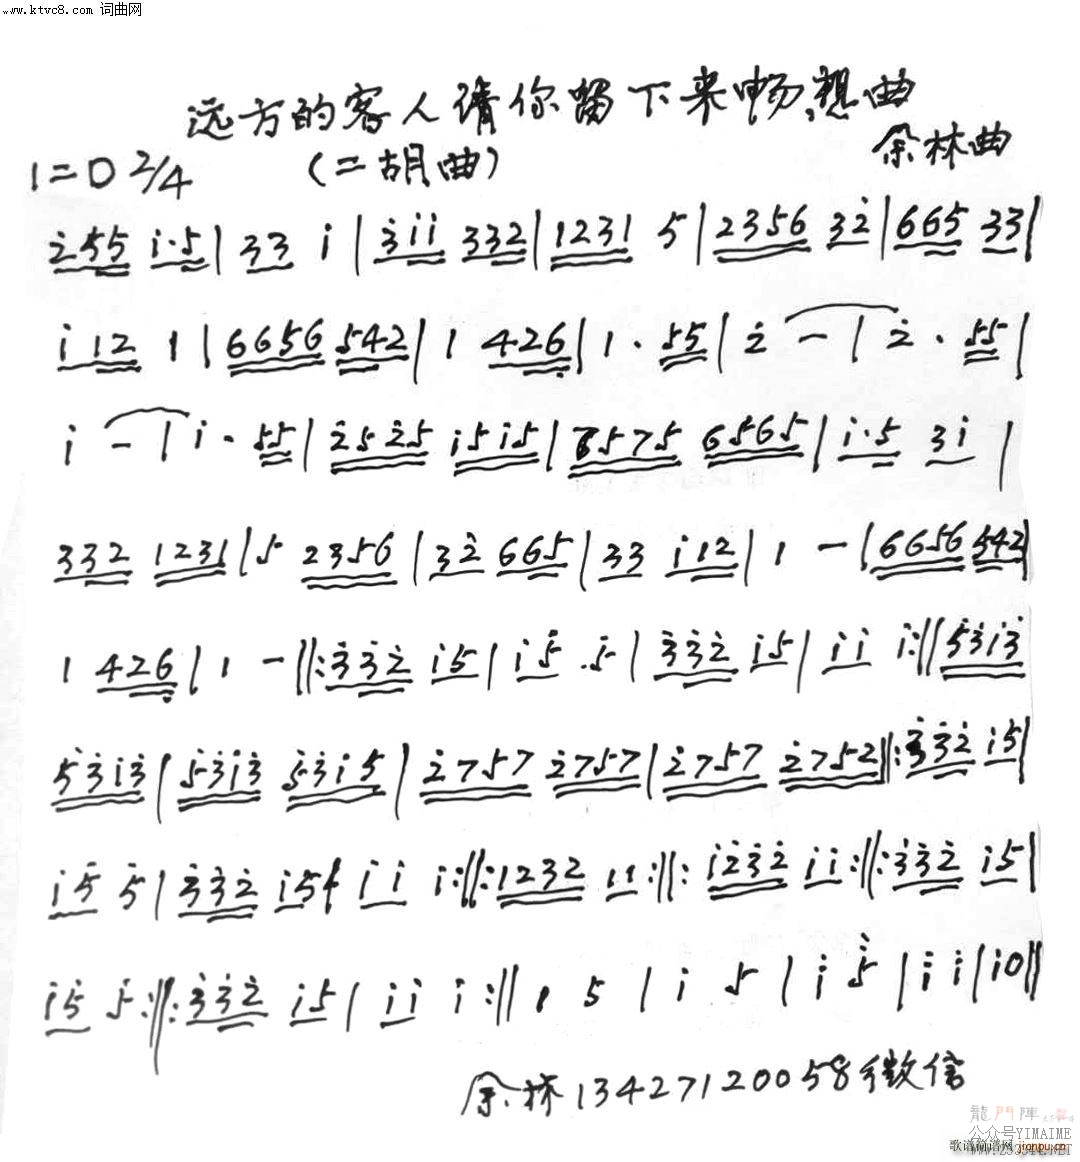 www.ktvc8.com 词曲网
远方的客人请你留下来畅想曲
1=D 2/4 (二胡曲) 余林曲
i̇255 i·5 | 33 i | 3ii 332 | 1231 5 | 2356 32 | 665 33 |
i12 1 | 6656 542 | 1 426 | 1 · 55 | 2 - | 2 · 55 |
i - | i · 55 | 2525 i5i5 | 7575 6565 | i·5 3i |
332 1231 | 5 2356 | 32 665 | 33 i12 | 1 - | 6656 542 |
1 426 | 1 - ‖: 332 i5 | i5 5 | 332 i5 | ii i :‖ 53i3
53i3 | 53i3 53i5 | 2757 2757 | 2757 2752 ‖: 332 i5 |
i5 5 | 332 i5 | ii i :‖: 1232 11 :‖: i232 ii :‖: 332 i5 |
i5 5 :‖: 332 i5 | ii i :‖ 1 5 | i 5 | i 5 | i i | i0 ‖
余林13427120058微信
龍門陣
公众号YIMAIME
歌谱简谱网 jianpu.cn